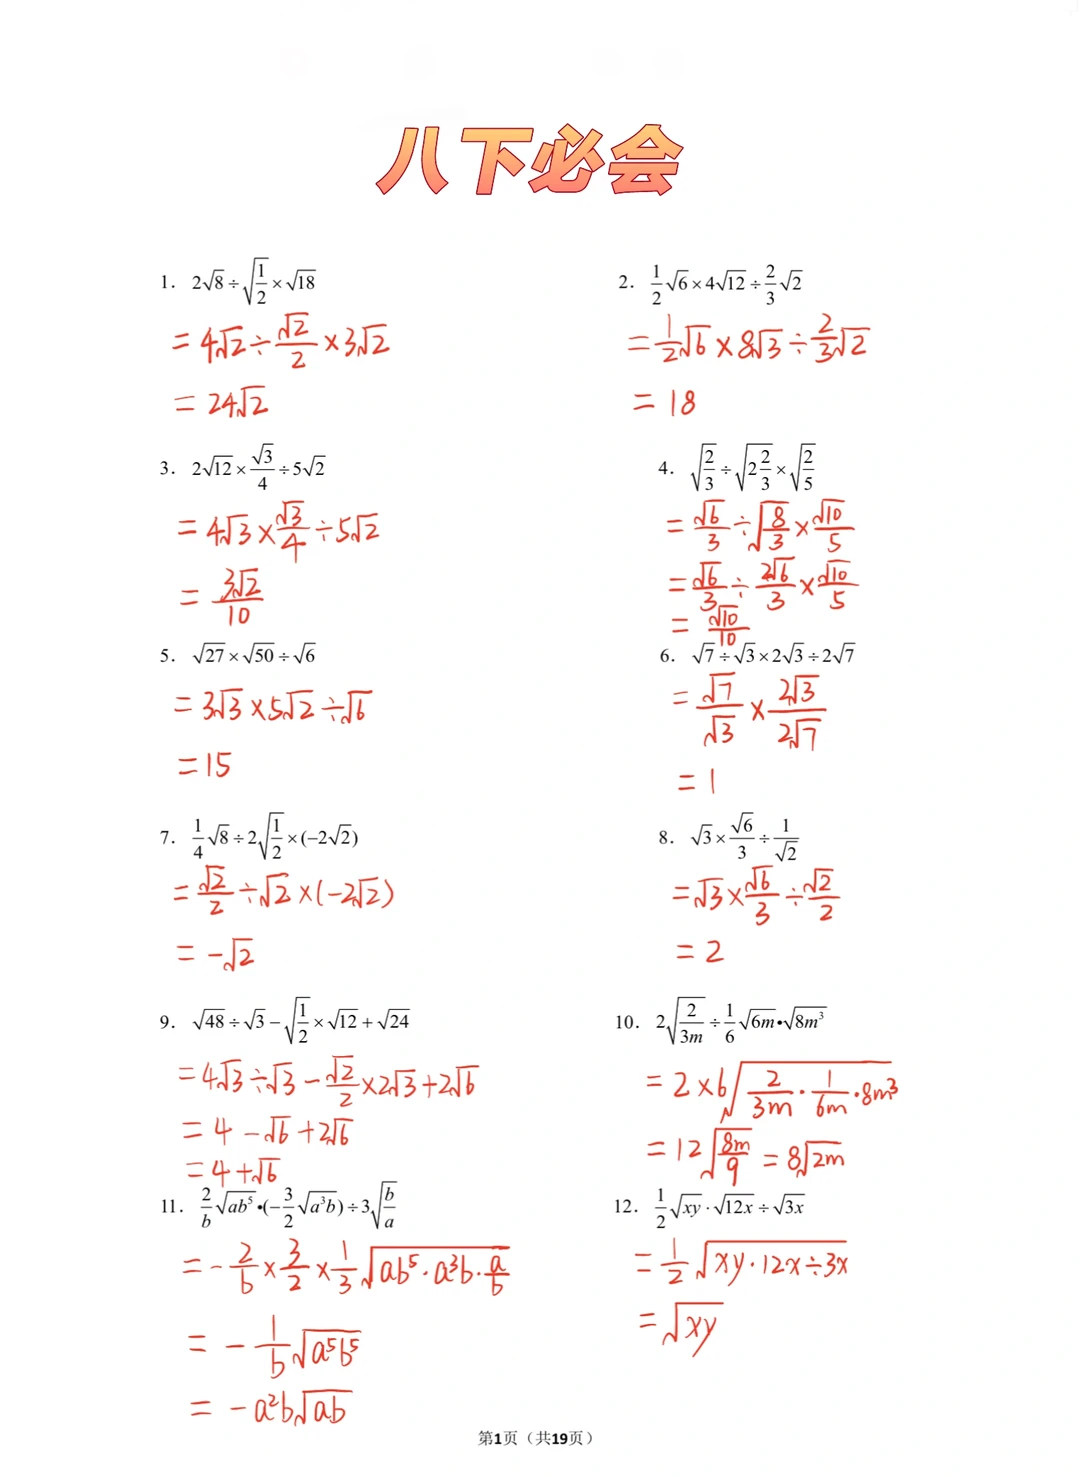 八下必会
1. 2√8÷√(1/2)×√18
=4√2÷√2/2×3√2
=24√2
2. 1/2√6×4√12÷2/3√2
=1/2√6×8√3÷2/3√2
=18
3. 2√12×√3/4÷5√2
=4√3×√3/4÷5√2
=3√2/10
4. √(2/3)÷√(2 2/3)×√(2/5)
=√6/3÷√(8/3)×√10/5
=√6/3÷2√6/3×√10/5
=√10/10
5. √27×√50÷√6
=3√3×5√2÷√6
=15
6. √7÷√3×2√3÷2√7
=√7/√3×2√3/2√7
=1
7. 1/4√8÷2√(1/2)×(−2√2)
=√2/2÷√2×(−2√2)
=−√2
8. √3×√6/3÷1/√2
=√3×√6/3÷√2/2
=2
9. √48÷√3−√(1/2)×√12+√24
=4√3÷√3−√2/2×2√3+2√6
=4−√6+2√6
=4+√6
10. 2√(2/3m)÷1/6√6m•√8m³
=2×6√(2/3m·1/6m·8m³)
=12√(8m/9)=8√2m
11. 2/b√ab⁵•(−3/2√a³b)÷3√(b/a)
=−2/b×3/2×1/3√(ab⁵·a³b·a/b)
=−1/b√a⁵b⁵
=−a²b√ab
12. 1/2√xy·√12x÷√3x
=1/2√(xy·12x÷3x)
=√xy
第1页（共19页）